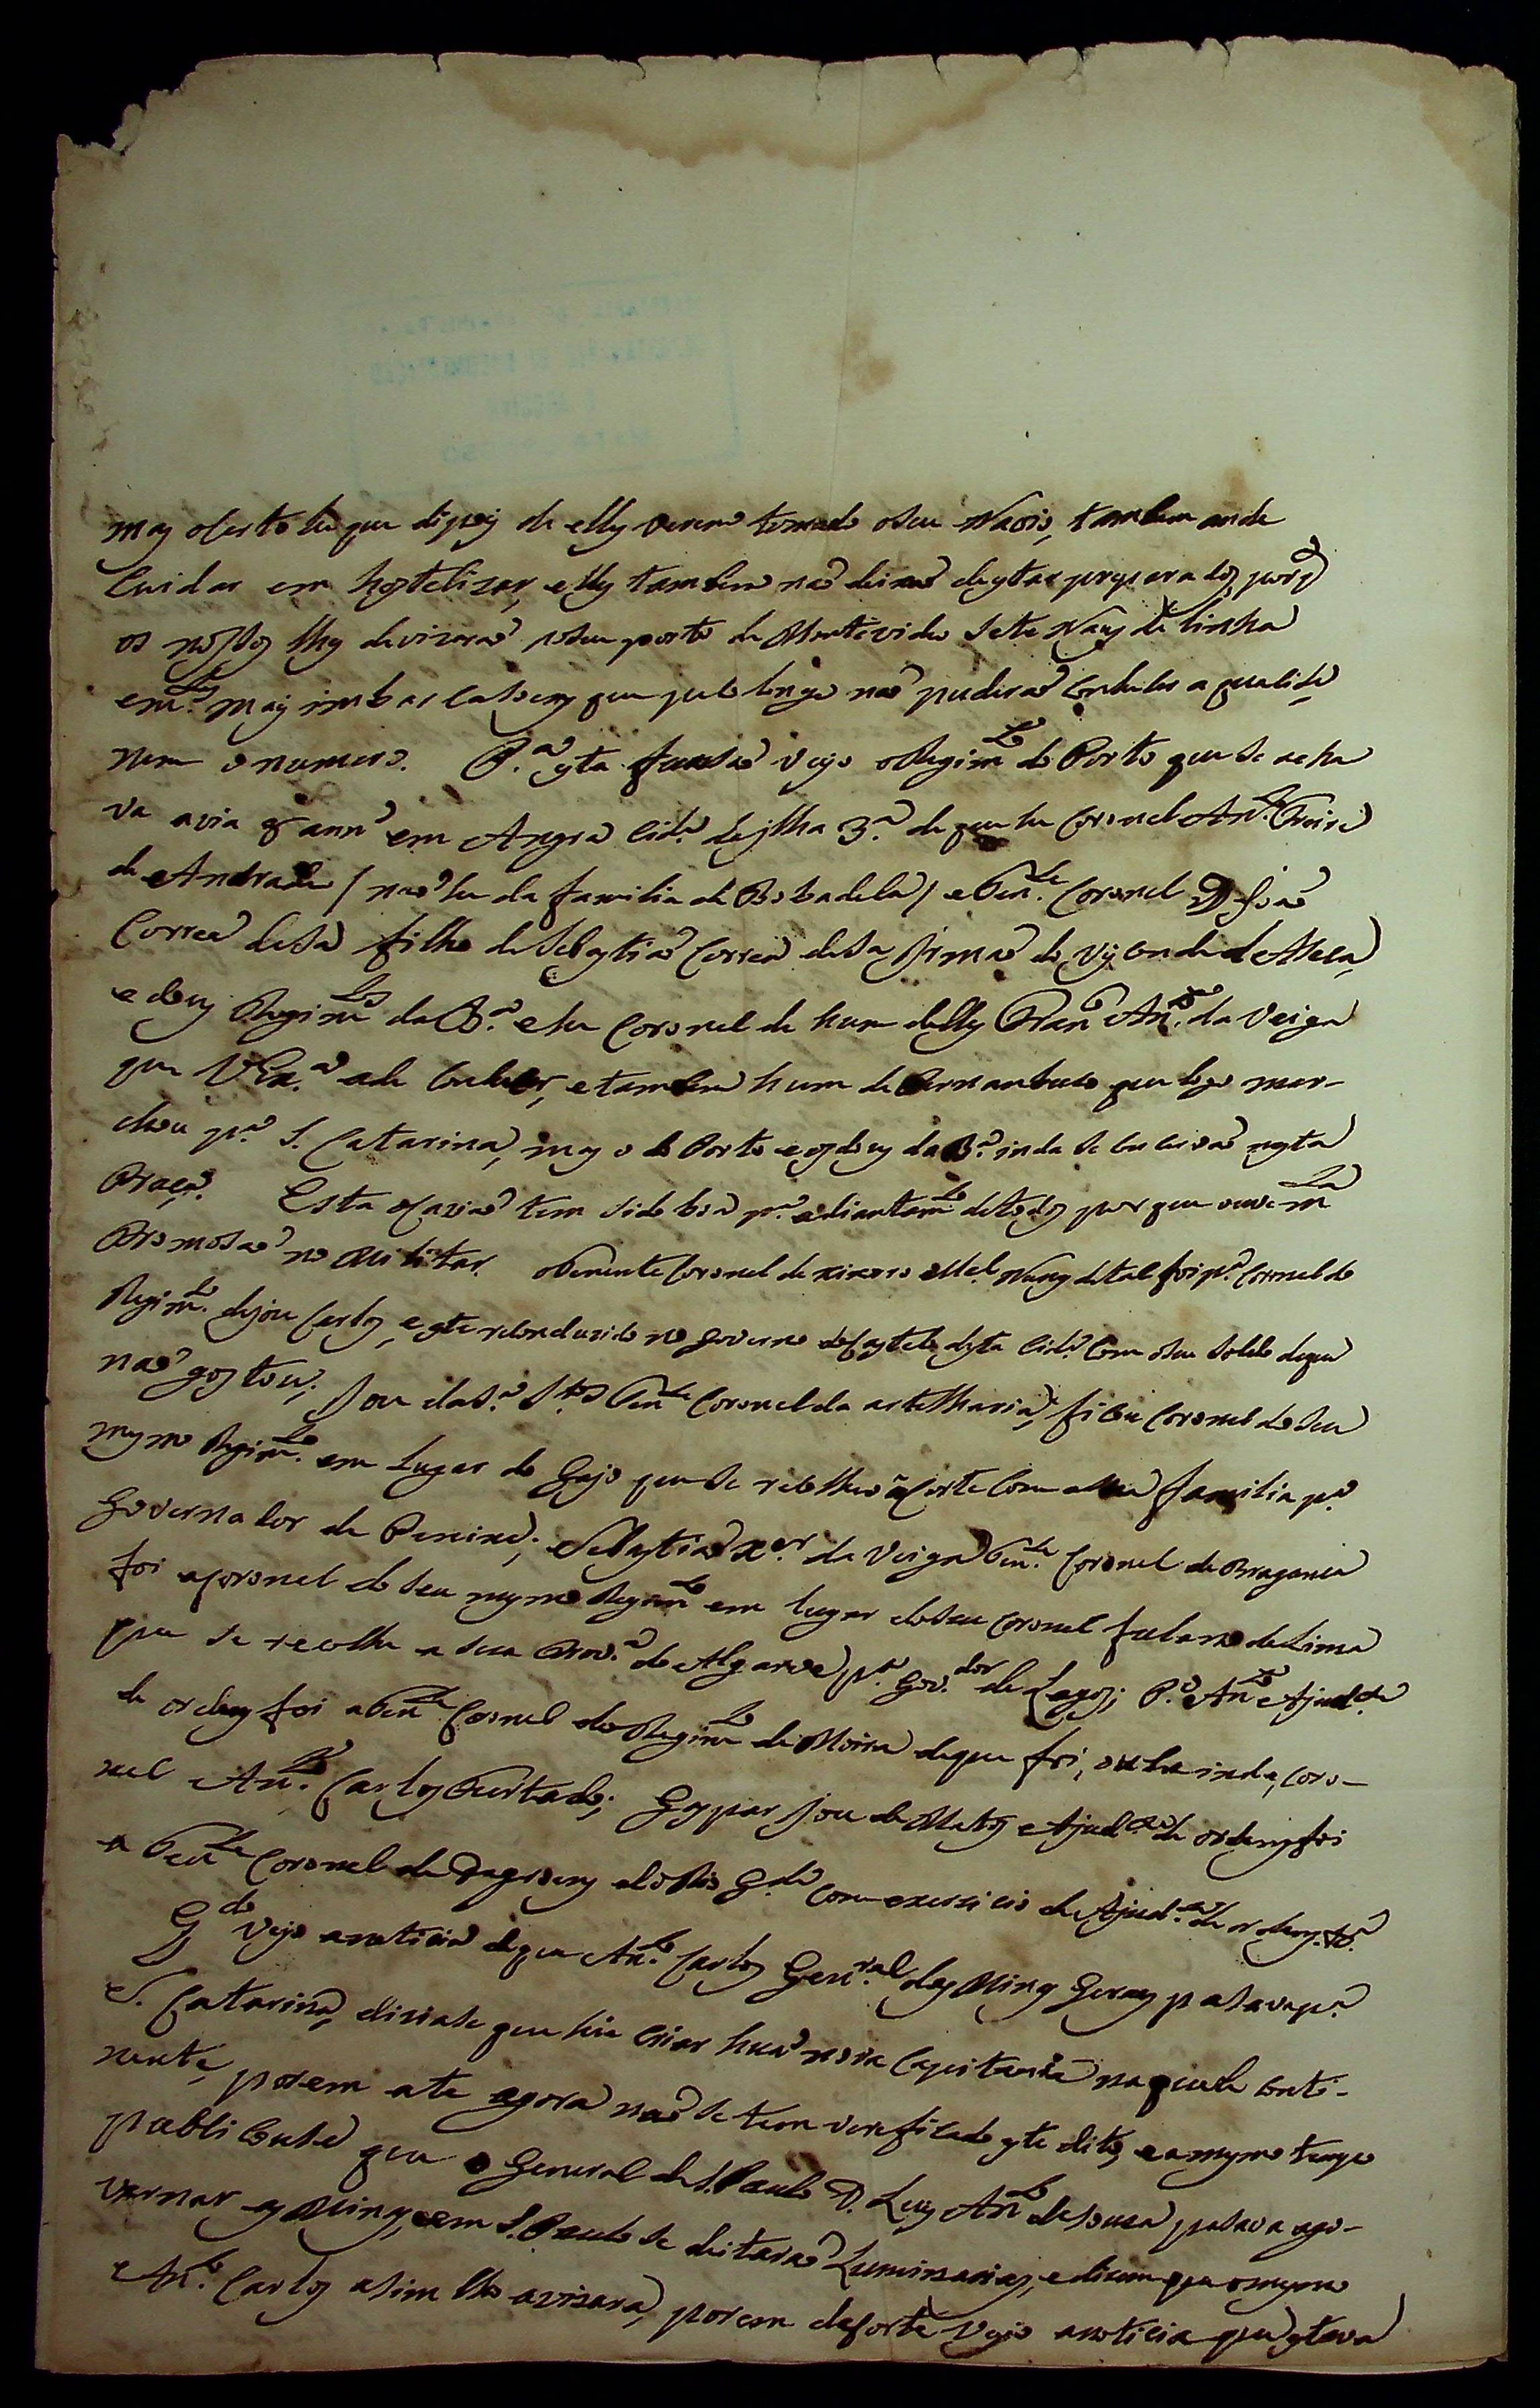 mas o certo he que dipois de elles verem tomado o seu Navio, tambem ande
Cuidar em hostelizar, elles tambem naõ deixaõ de estar preparados, porq̃
os nossos lhes devizaraõ no seu porto de Montevideo sete Naus de linha
em.tas mais imbarcasoens que pelo longe naõ puderaõ conhecer a qualide,
nem o numero. P.a esta funsaõ vejo o Regim.to do Porto que se acha
va avia 8 annos em Angra Cid.e da jlha 3.a de que he Coronel An.to Freire
de Andrade / naõ he da familia de Bobadela / e Ten.te Coronel D Joaõ
Correa de Sa filho de Sebastiaõ Correa de Sa Irmaõ do Visconde de Aseca,
e dous Regim.tos da B.a e he Coronel de hum delles Fran.co An.to da Veiga
que V Ex.a ade conhecer, e tambem hum de Pernambuco que logo mar-
chou p.a S. Catarina, mas o do Porto e os dous da B.a inda se conservaõ nesta
Praça. Esta ocaziaõ tem sido boa p.a adiantam.to de todos por que ouve m.ta
Promosaõ no Militar. o Tenente Coronel de Mel. Nunes de tal foi p.a Coronel do
Regim.to de Joze Carlos, e este reconduzido no governo do Castelo desta Cid.e com o seu soldo de que
naõ gostou; Joze da S.a S.tos Ten.te Coronel da artelharia, ficou Coronel do seu
mesmo Regim.to em Lugar do Gajo que se recolheo a Corte com a sua familia p.a
Governador de Peniche; e Sebastiaõ X.er da Veiga Ten.te Coronel de Bragança
foi a Coronel do seu mesmo Regim.to em lugar do seu Coronel fulano de Lima
que se recolhe a sua Prov.a do Algarve, p.a Gov.dor de Lagos; P.o An.to Ajud.te
de ordens foi a Ten.te Coronel do Regim.to de Moira de que foi, ou he inda, Coro-
nel An.to Carlos Furtado; Gaspar Joze de Matos Ajud.te de ordens foi
a Ten.te Coronel de Dragoens do Rio G.de com exersicio de Ajud.te de ordens. &.a
G.do Vejo a noticia de que An.to Carlos Gen.ral das Minas Geraes pasava p.a
S. Catarina, diziase que hia criar hua nova Capitania naquele conti-
nente, porem ate agora naõ se tem verificado este dito, e a mesmo tempo
publicouse que o General de S. Paulo D. Luis An.to de Souza pasava a go-
vernar as Minas, e em S. Paulo se deitaraõ Luminarias, e dizem que o mesmo
An.to Carlos asim lho avizara, porem da Corte Vejo a noticia que estava